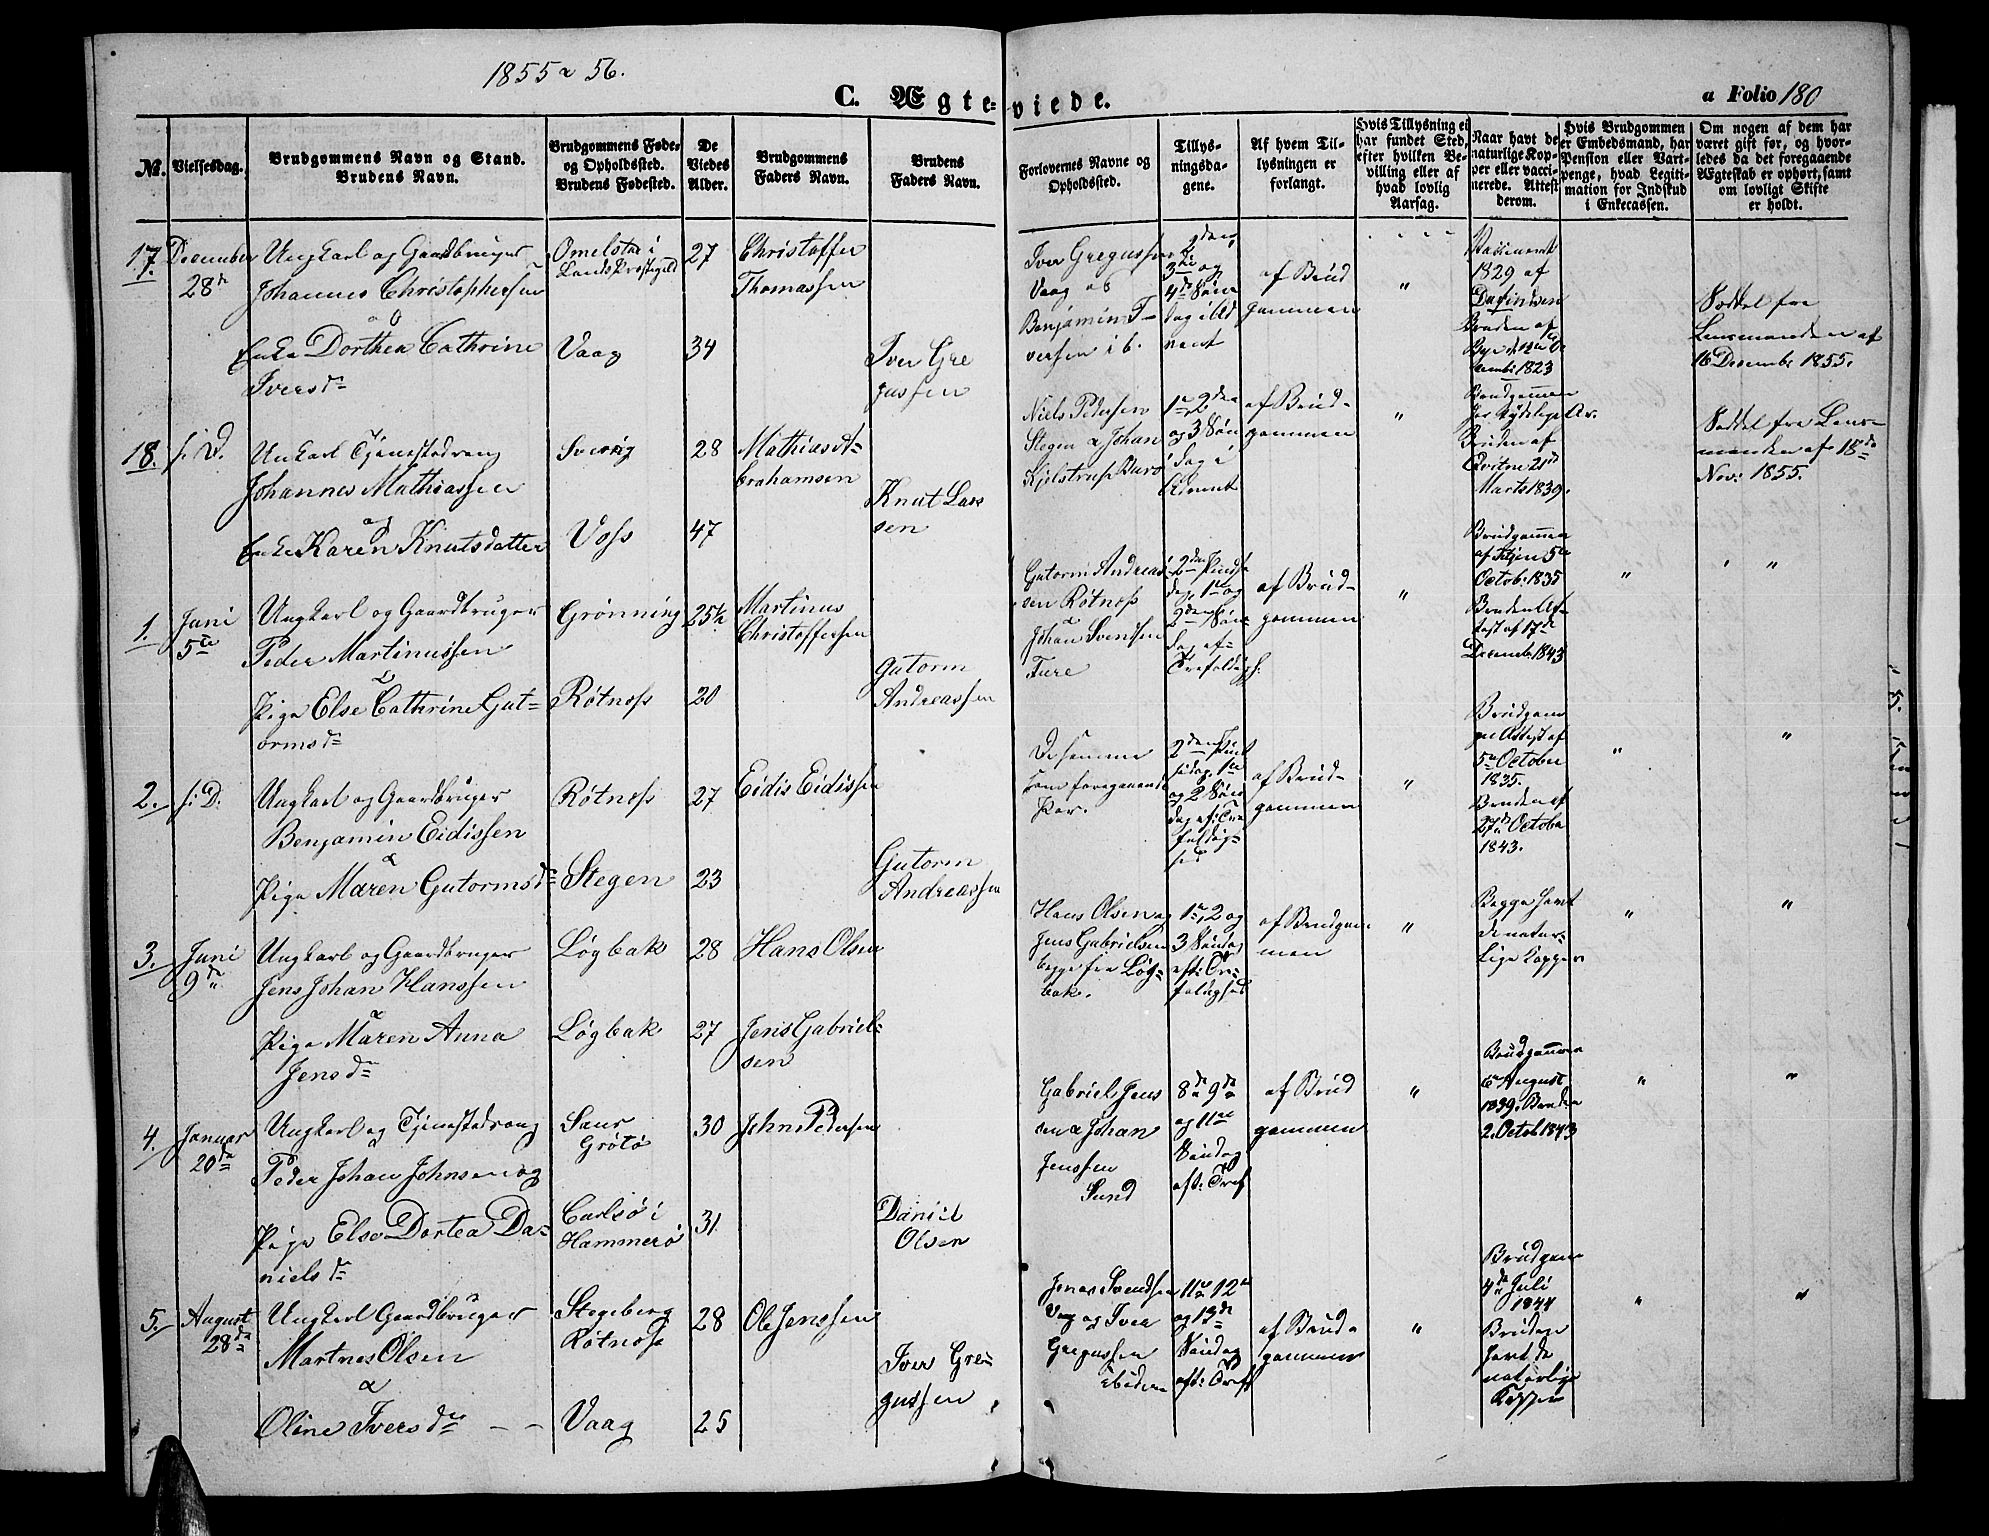 1855 & 56.
C. Ægteviede.
a Folio 180
No.
Vielsesdag.
Brudgommens Navn og Stand.
Brudens Navn.
Brudgommens Føde-
og Opholdssted.
Brudens Fødested.
De
Viedes
Alder.
Brudgommens
Faders Navn.
Brudens
Faders Navn.
Forlovernes Navne og
Opholdssted.
Tillys-
ningsda-
gene.
Af hvem Til-
lysningen er
forlangt.
Hvis Tillysning ei
har fundet Sted,
efter hvilken Be-
villing eller af
hvad lovlig
Aarsag.
Naar havt de
naturlige Kop-
per eller vacci-
nerede. Attest
derom.
Hvis Brudgommen
er Embedsmand, har
Pension eller Vart-
penge, hvad Legiti-
mation for Indskud
i Enkecassen.
Om nogen af dem har
været gift før, og hvor-
ledes da det foregaaende
Ægteskab er ophørt, samt
om lovligt Skifte
er holdt.
17. December
28de
Ungkarl og Gaardbruger
Johannes Christophersen
&
Enke Dorthea Cathrine
Iversdr
i
Lands Præstegield
Vaag
27
34
Christoffer
Thomassen
Iver Gre
gussen
Iver Gregussen
Vaag og
Benjamin
versen ib.
2den
3die og
4de Søn
dag i Ad
vent
af Brud
gommen
"
Vaccineret
1829 af
Bruden af
1823
Seddel fra
Lensmanden af
16 December 1855.
18. s: D.
Unkarl Tjenestedreng
Johannes Mathiassen
og
Enke Karen Knutsdatter
Sverrig
Voss
28
47
Mathias A-
brahamsen
Knut Lars
sen
Niels Pedersen
Stegen & Johan
Kjelstrup
1ste, 2den
og 3 Søn
dag i
Advent
af Brud-
gommen
"
Brudgommen
har tydelige Ar.
Bruden af
21de
Marts 1839.
Seddel fra Lens-
manden af 18de
Nov: 1855.
1. Juni
5te
Ungkarl og Gaardbruger
Peder Martinussen
&
Pige Else Cathrine Gut-
ormsdr
Grønning
Røtness
25½
20
Martinus
Christoffersen
Gutorm
Andreassen
Gutorm Andreas-
sen Røtness
&
Johan Svendsen
Fure
2den Pindse
dag, 1ste og
2den Søn-
dag ef-
Trefoldigh.
af Brud-
gommen
"
Brudgommen
5te
Octob: 1835
Bruden At-
test af 17de
Decemb. 1843
"
"
2. s: D:
Ungkarl og Gaardbruger
Benjamin Eidissen
&
Pige Maren Gutormsdr
Røtness
Stegen
27
23
Eidis Eidissen
Gutorm
Andreassen
De samme
som foregaaende
Par.
2den Pint
sedag, 1ste
og 2 Søn
dag ef: Tre
foldig-
hed
af Brud-
gommen
"
Brudgom
en Attest af
5te October
1835.
Bruden af
27de October
1843.
"
"
3. Juni
9de
Ungkarl og Gaardbruger
Jens Johan Hanssen
&
Pige Maren Anna
Jensdr
Løgbak
Løgbak
28
27
Hans Olsen
Jens Gabriel-
sen
Hans Olsen og
Jens Gabrielsen
begge fra Løg-
bak.
1ste, 2 og
3 Søndag
eft: Tre-
foldighed
af Brudgom-
men
"
Begge havt
de natur-
lige Kopper
"
"
4. Januar
20de
Ungkarl og Tjenestedreng
Peder Johan Johnsen og
Pige Else Dortea Da-
nielsdr
Grøtø
Carlsø i
Hammerø
30
31
John Pedersen
Daniel
Olsen
Gabriel Jens
sen & Johan
Jenssen
Sund
8de 9de
og 11te
Søndag
eft: Tref
af Brud
gommen
"
Brudgommen
6te August
1839. Bruden
2. Octob 1843
"
"
5. August
28de
Ungkarl Gaardbruger
Martnes Olsen
&
Oline Iversdr - -
Stegeberg
Røtness
Vaag
28
25
Ole Jenssen
Iver Gre-
gussen
Jonas Svendsen
Vag og Iver
Gregussen
ibidem
11te 12te
og 13de
Søndag
eft: Tref
af Brud-
gommen
"
Brudgom
4de Juli
1844
Bruden
havt de
naturlige
Kopper
"
"